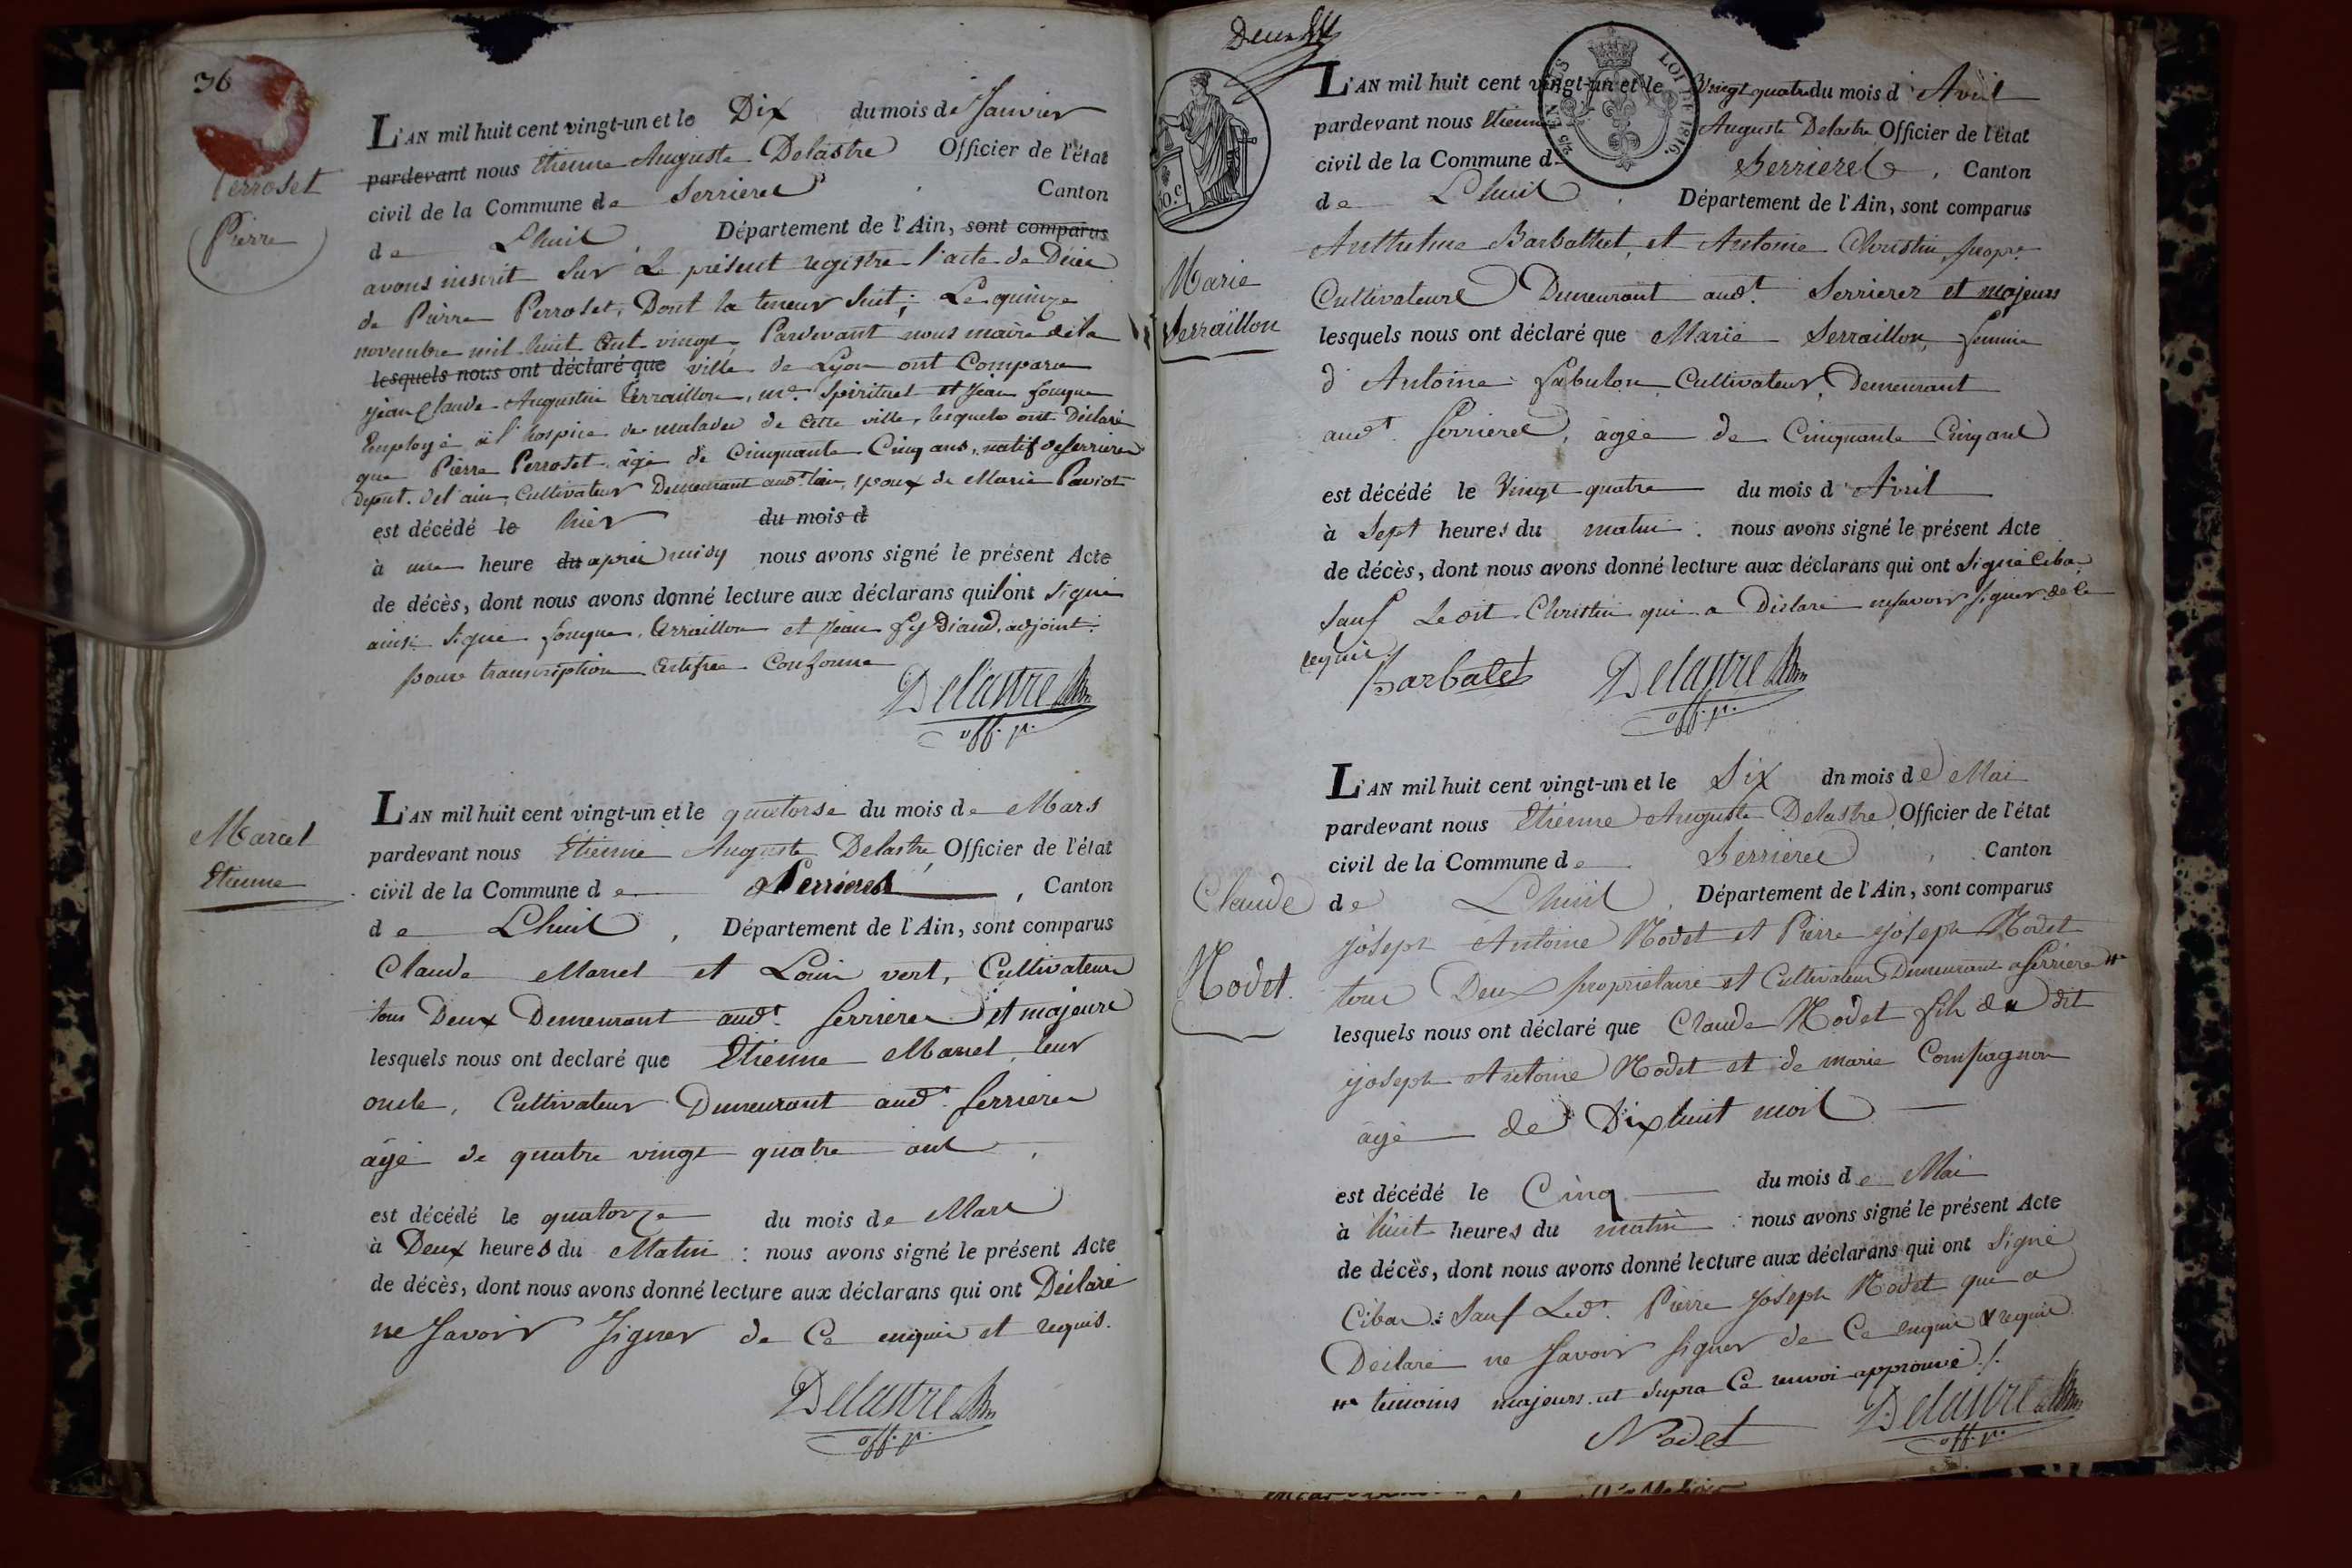 36
Perroset
Pierre
L'AN mil huit cent vingt-un et le Dix du mois de Janvier
pardevant nous Etienne Auguste Delastre Officier de l'état
civil de la Commune de Serrieres Canton
de Lhuis, Département de l'Ain, sont comparus
avons inscrit sur Le présent registre l'acte de Décès
de Pierre Perroset, Dont la teneur suit; Le quinze
novembre mil huit cent vingt, Pardevant nous maire de la
lesquels nous ont déclaré que ville de Lyon ont Comparu
Jean Claude Augustin Terraillon, me. Spirituel et Jean fouque
Employé à l'hospice des malades de cette ville, lesquels ont Déclaré
que Pierre Perroset âgé de Cinquante Cinq ans, natif de Serrieres
depart. del'ain, Cultivateur Demeurant audt. lieu, époux de Marie Paviot
est décédé le hier du mois d
à une heure du après midy nous avons signé le présent Acte
de décès, dont nous avons donné lecture aux déclarans qui l'ont signé
ainsi signé fouque, Terraillon et Jean adjoint.
pour transcription Certifiée Conforme
Delastre
off. p.
Marcel
Etienne
L'AN mil huit cent vingt-un et le quatorse du mois de Mars
pardevant nous Etienne Auguste Delastre, Officier de l'état
civil de la Commune de Serrieres, Canton
de Lhuis, Département de l'Ain, sont comparus
Claude Marcel et Louis vert, Cultivateurs
tous Deux Demeurant audt. Serrieres et majeurs
lesquels nous ont declaré que Etienne Marcel, leur
oncle, Cultivateur Demeurant audt. Serrieres
âgé de quatre vingt quatre ans,
est décédé le quatorze du mois de Mars
à Deux heures du Matin : nous avons signé le présent Acte
de décès, dont nous avons donné lecture aux déclarans qui ont Déclaré
ne Savoir Signer de Ce enquis et requis.
Delastre
off. p.
LOI DE 1816.
Marie
Serraillon
L'AN mil huit cent vingt-un et le Vingt quatre du mois d'Avril
pardevant nous Etienne Auguste Delastre Officier de l'état
civil de la Commune de Serrieres, Canton
de Lhuis, Département de l'Ain, sont comparus
Anthelme Barbattet, et Antoine Christin, propr.
Cultivateurs Demeurant audt. Serrieres et majeurs
lesquels nous ont déclaré que Marie Serraillon, femme
d'Antoine fabulon, Cultivateur, Demeurant
audt. Serrieres, âgée de Cinquante Cinq ans
est décédé le Vingt quatre du mois d'Avril
à Sept heures du matin : nous avons signé le présent Acte
de décès, dont nous avons donné lecture aux déclarans qui ont Signé Cibas
Sauf Ledit Christin qui a Déclaré ne savoir signer de ce
requis
Barbatet Delastre
off. p.
Claude
Nodet.
L'AN mil huit cent vingt-un et le Six dn mois de Mai
pardevant nous Etienne Auguste Delastre, Officier de l'état
civil de la Commune de Serrieres, Canton
de Lhuis, Département de l'Ain, sont comparus
joseph Antoine Nodet et Pierre joseph Nodet
tous Deux propriétaire et Cultivateur Demeurant a Serrieres
lesquels nous ont déclaré que Claude Nodet fils du dit
joseph Antoine Nodet et de marie Compagnon
âgé de Dix huit mois
est décédé le Cinq du mois de Mai
à huit heures du matin : nous avons signé le présent Acte
de décès, dont nous avons donné lecture aux déclarans qui ont Signé
Cibas : Sauf Ledt. Pierre joseph Nodet qui a
Déclaré ne Savoir Signer de Ce enquis & requis
témoins majeurs ut supra Ce renvoi approuvé ./.
Nodet Delastre
off. p.